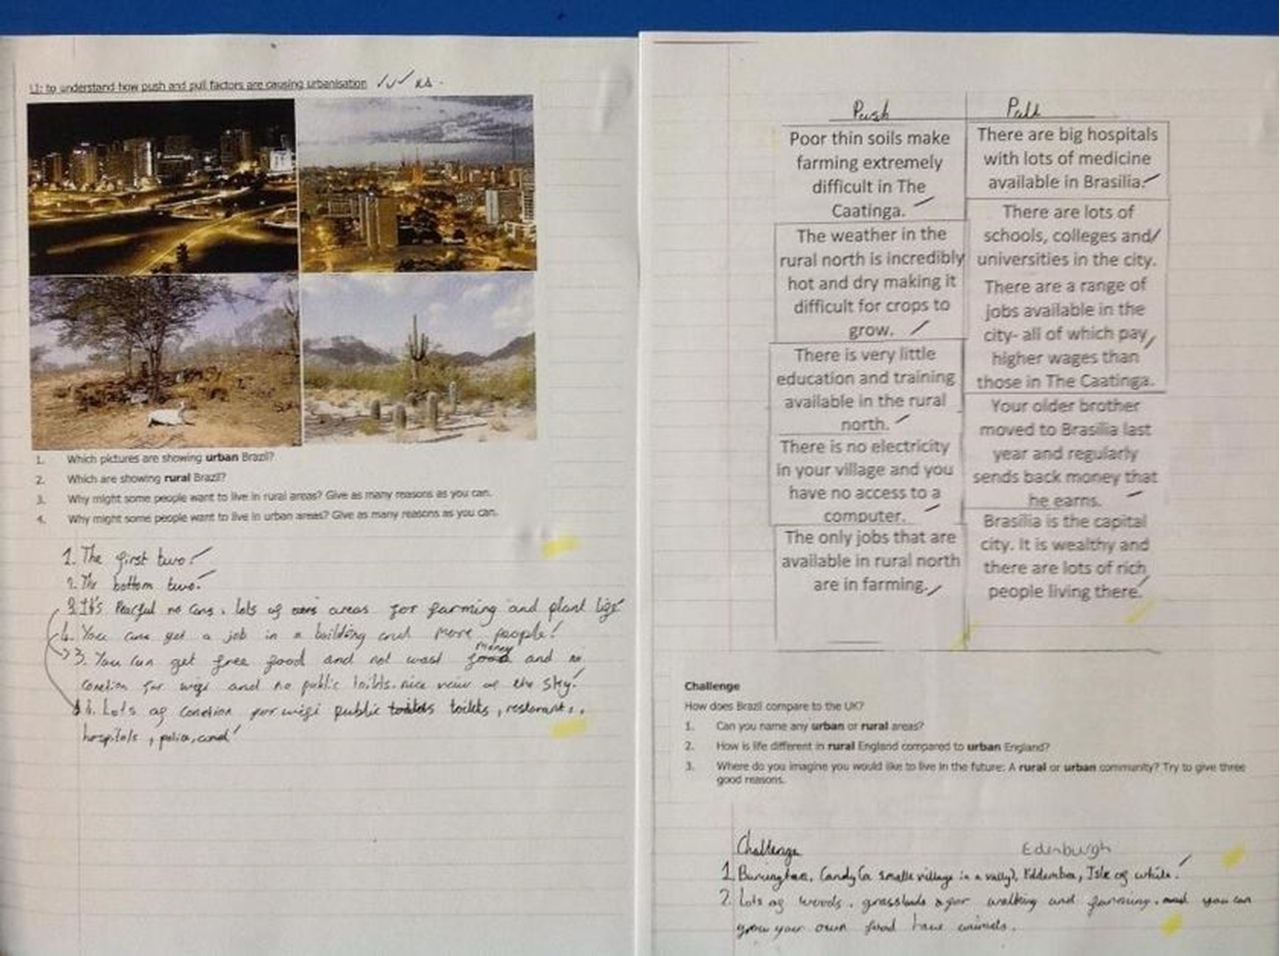 LI: to understand how push and pull factors are causing urbanisation
1. Which pictures are showing urban Brazil?
2. Which are showing rural Brazil?
3. Why might some people want to live in rural areas? Give as many reasons as you can.
4. Why might some people want to live in urban areas? Give as many reasons as you can.
1. The first two.
2. The bottom two.
3. It's Peacful no cars, lots of areas for farming and plant
4. You can get a job in a building and more people.
3. You can get free food and not wast money and no
conetion for wifi and no public toilits. nice view of the sky.
4. Lots of conetion for wifi public toilets, restorants,
hospitals, police, and
Push
Poor thin soils make
farming extremely
difficult in The
Caatinga.
The weather in the
rural north is incredibly
hot and dry making it
difficult for crops to
grow.
There is very little
education and training
available in the rural
north.
There is no electricity
in your village and you
have no access to a
computer.
The only jobs that are
available in rural north
are in farming.
Pull
There are big hospitals
with lots of medicine
available in Brasilia.
There are lots of
schools, colleges and
universities in the city.
There are a range of
jobs available in the
city- all of which pay
higher wages than
those in The Caatinga.
Your older brother
moved to Brasilia last
year and regularly
sends back money that
he earns.
Brasilia is the capital
city. It is wealthy and
there are lots of rich
people living there.
Challenge
How does Brazil compare to the UK?
1. Can you name any urban or rural areas?
2. How is life different in rural England compared to urban England?
3. Where do you imagine you would like to live in the future: A rural or urban community? Try to give three
good reasons.
Challenge
Edinburgh
1. village in a vally), Isle of white.
2. Lots of woods, grasslands for walking and farming. and you can
grow your own food have animels.